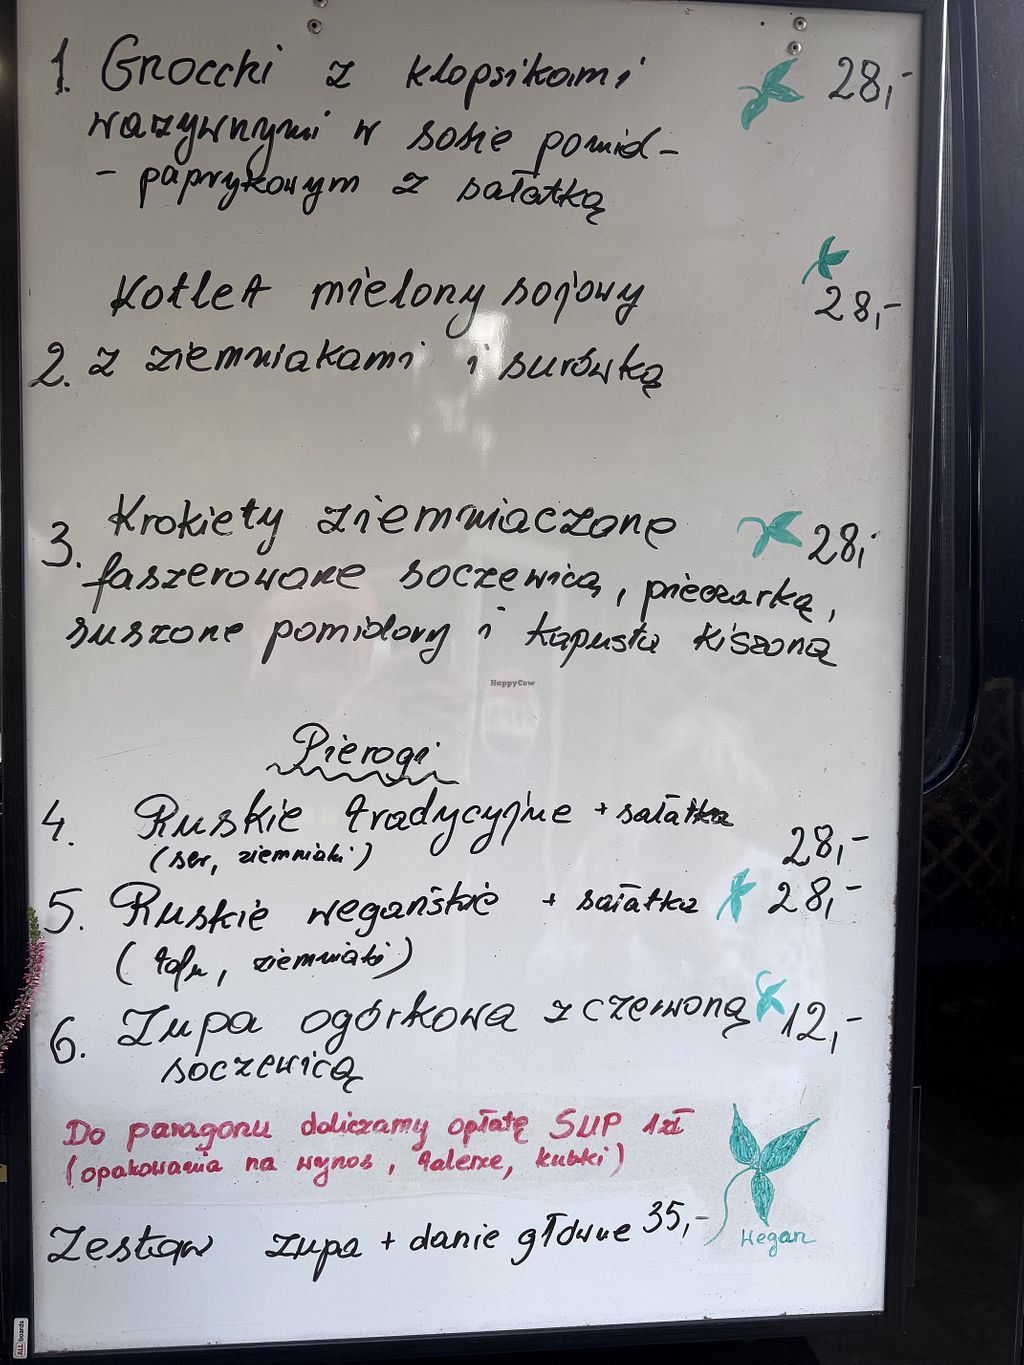 1. Gnocchi z klopsikami 28,-
warzywnymi w sosie pomid-
- paprykowym z sałatką
Kotlet mielony sojowy 28,-
2. z ziemniakami i surówką
3. Krokiety ziemniaczane 28,-
faszerowane soczewicą, pieczarką,
suszone pomidory i kapusta kiszoną
HappyCow
Pierogi
4. Ruskie tradycyjne + sałatka 28,-
(ser, ziemniaki)
5. Ruskie wegańskie + sałatka 28,-
(tofu, ziemniaki)
6. Zupa ogórkowa z czerwoną 12,-
soczewicą
Do paragonu doliczamy opłatę SUP 1zł
(opakowania na wynos, talerze, kubki)
Zestaw zupa + danie główne 35,-
Wegan
ALLboards